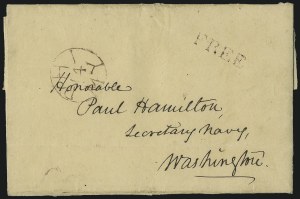 FREE
Honorable
Paul Hamilton,
Secretary Navy,
Washington.